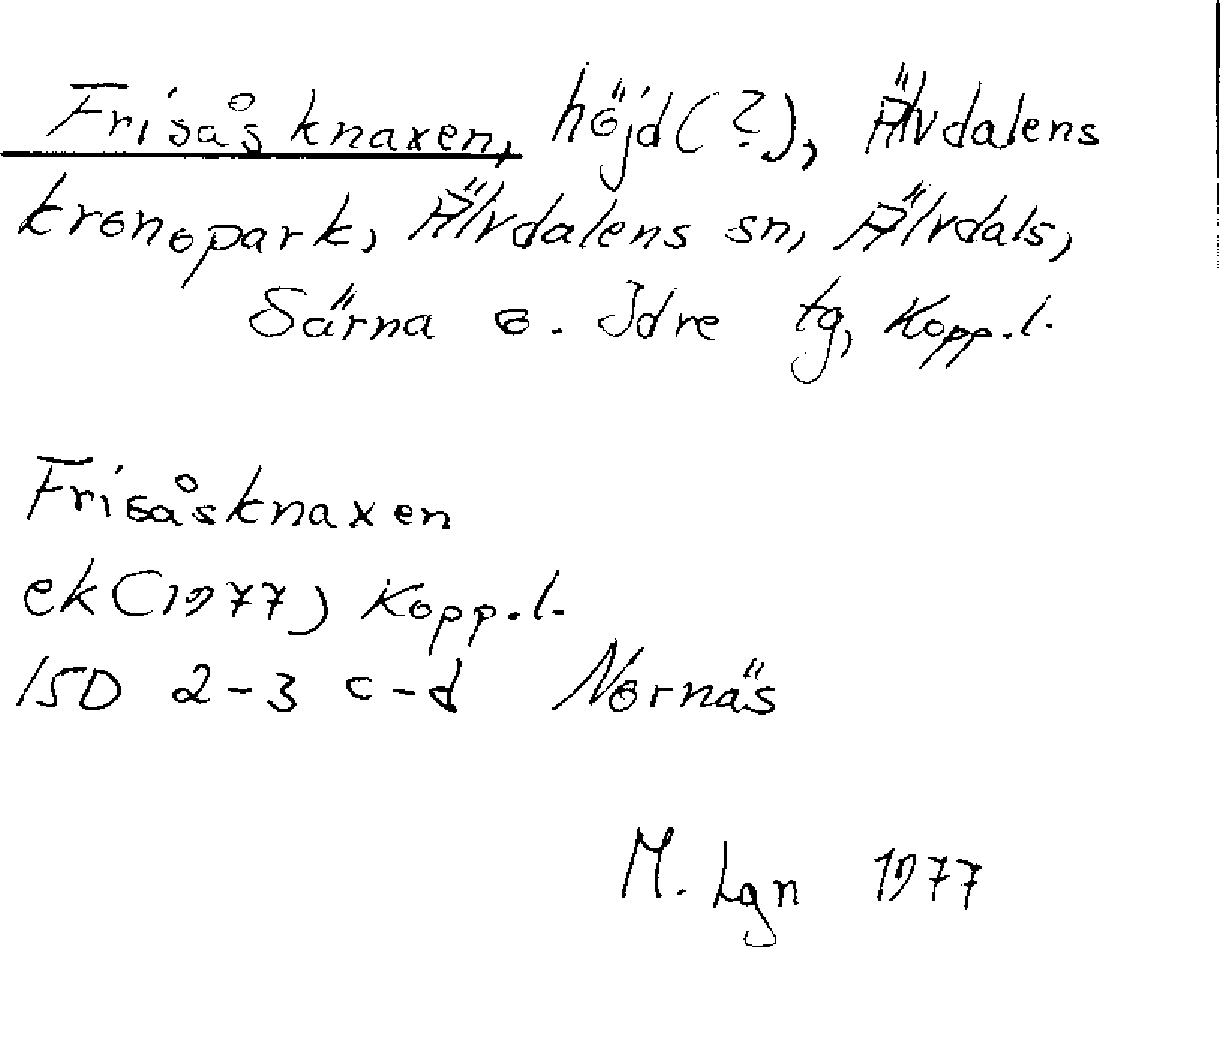 Frisåsknaxen, höjd(?), Älvdalens
kronopark, Älvdalens sn, Älvdals,
Särna o. Idre tg, Kopp.l.
Frisåsknaxen
ek(1977) Kopp.l.
15D 2-3 c-d Nornäs
M. Lgn 1977